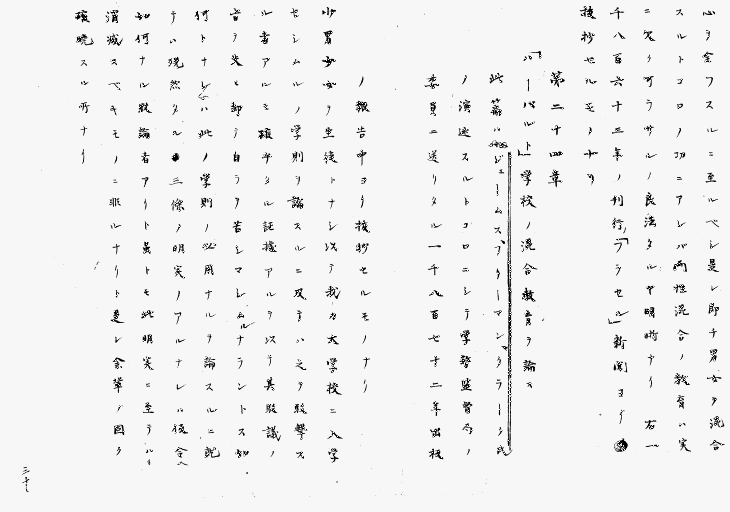 心ヲ全フスルニ至ルベシ是レ即チ男女ヲ混合
スルトコロノ功ニアレバ両性混合ノ教育ハ実
ニ欠ク可ラザルノ良法タルヤ明晰ナリ 右一
千八百六十三年ノ刊行「ブラセル」新聞ヨリ
抜抄セルモノナリ
第二十四章
「ハーバルト」学校ノ混合教育ヲ論ス
此篇ハ ジェームス、フリーマン、クラーク氏
ノ演述スルトコロニシテ学務監督局ノ
委員ニ送リタル一千八百七十二年出板
ノ報告中ヨリ抜抄セルモノナリ
少男少女ヲ生徒トナシ以テ我々大学校ニ入学
セシムルノ学則ヲ論スルニ及テハ之ヲ駁撃ス
ル者アルモ確乎タル証拠アルヲ以テ其駁議ノ
音ヲ失ヒ却テ自ラヲ苦シマシムルナラントス如
何トナレハ此ノ学則ノ必用ナルヲ論スルニ就
テハ現然タル三條ノ明実ノアルナレハ仮令ヘ
如何ナル駁論者アリト雖トモ此明実ニ至テハ
消滅スベキモノニ非ルナリト是レ余輩ノ固ク
確晩スル所ナリ
三十